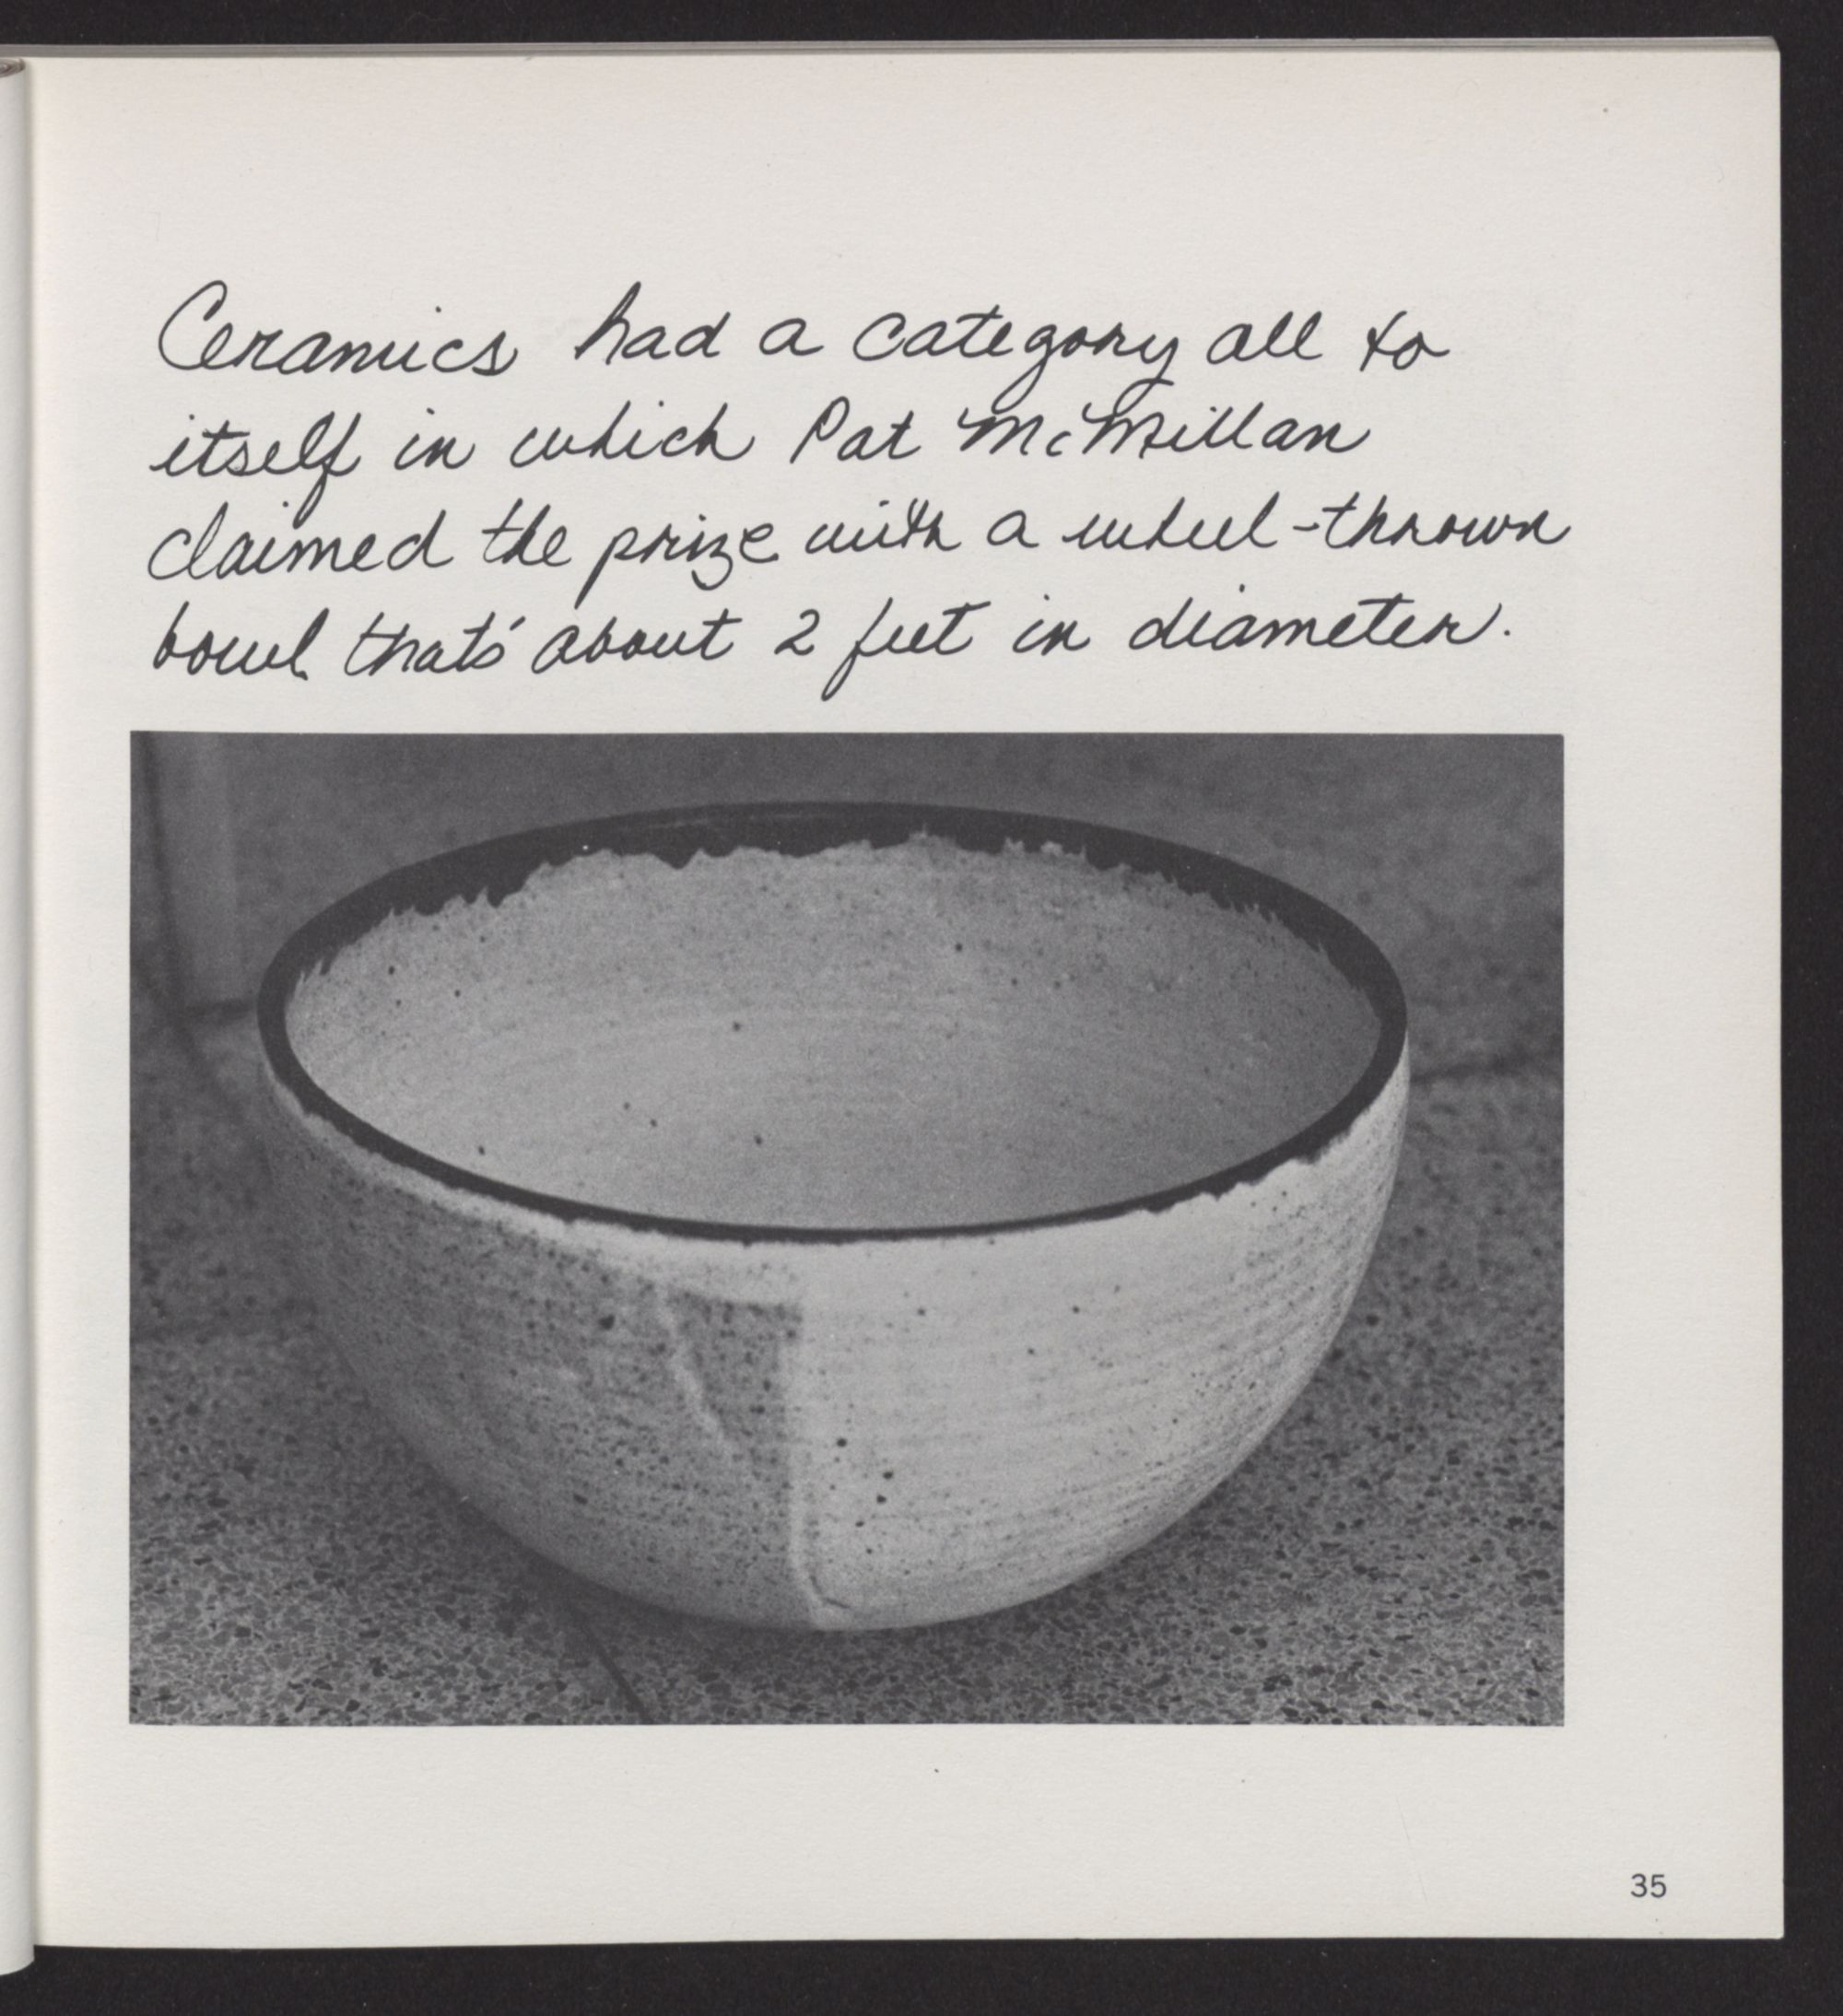 Ceramics had a category all to
itself in which Pat McMillan
claimed the prize with a wheel-thrown
bowl that's about 2 feet in diameter.
35